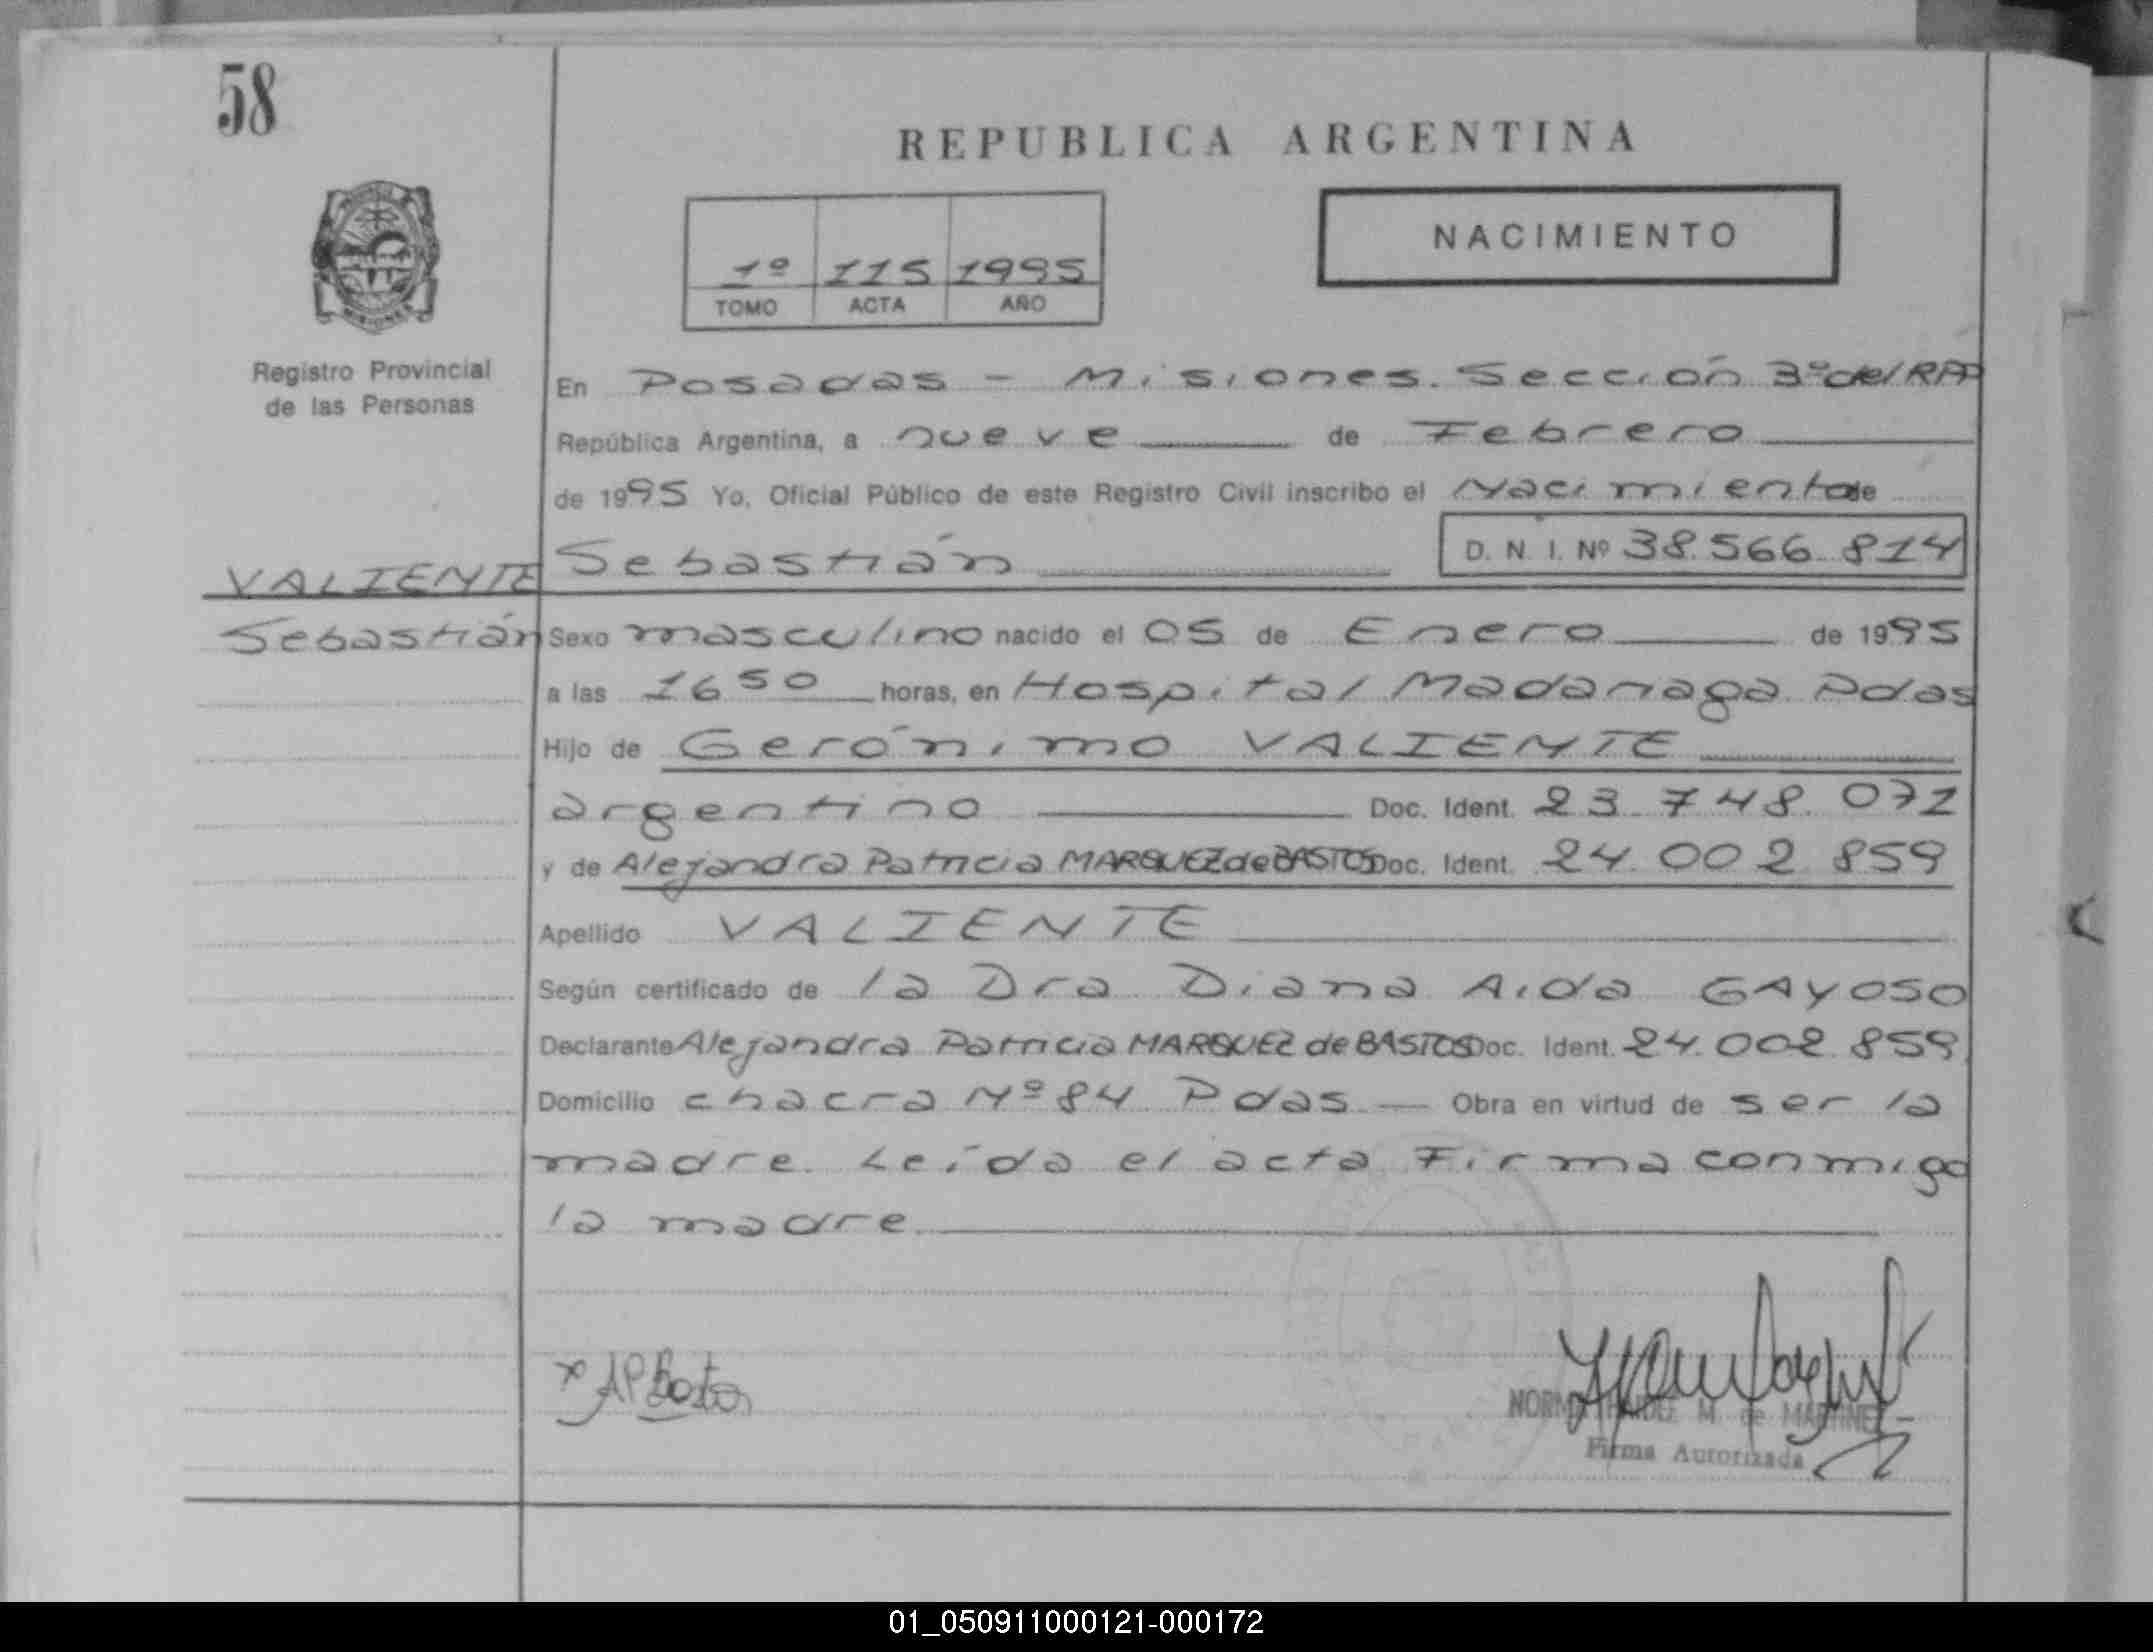 58
REPUBLICA ARGENTINA
NACIMIENTO
1º 115 1995
TOMO ACTA AÑO
MISIONES
Registro Provincial
de las Personas
En Posadas - Misiones. Sección 3º del RPP
República Argentina, a nueve de Febrero
de 1995 Yo, Oficial Público de este Registro Civil inscribo el Nacimiento de
Sebastián D. N. I. Nº 38.566.814
VALIENTE
Sebastián
Sexo masculino nacido el 05 de Enero de 1995
a las 16 50 horas, en Hospital Madariaga Pdas
Hijo de Gerónimo VALIENTE
argentino Doc. Ident. 23.748.071
y de Alejandra Patricia MARQUEZ de BASTOS Doc. Ident. 24.002.859
Apellido VALIENTE
Según certificado de la Dra Diana Aida GAYOSO
Declarante Alejandra Patricia MARQUEZ de BASTOS Doc. Ident. 24.002.859
Domicilio chacra Nº 84 Pdas Obra en virtud de ser la
madre. Leída el acta Firma conmigo
la madre
x AP Bastos
NORMA M. de MARTINEZ
Firma Autorizada
01_050911000121-000172